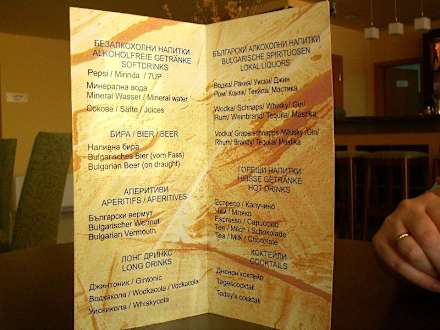 БЕЗАЛКОХОЛНИ НАПИТКИ
ALKOHOLFREIE GETRÄNKE
SOFTDRINKS
Pepsi / Mirinda / 7UP
Минерална вода
Mineral Wasser / Mineral water
Сокове / Säfte / Juices
БИРА / BIER / BEER
Наливна бира
Bulgarisches Bier (vom Fass)
Bulgarian Beer (on draught)
АПЕРИТИВИ
APERITIFS / APERITIVES
Български вермут
Bulgarischer Wermut
Bulgarian Vermouth
ЛОНГ ДРИНКС
LONG DRINKS
Джинтоник / Gintonic
Водкакола / Wodkacola / Vodkacola
Уискикола / Whiskycola
БЪЛГАРСКИ АЛКОХОЛНИ НАПИТКИ
BULGARISCHE SPIRITUOSEN
LOKAL LIQUORS
Водка/ Ракия/ Уиски/ Джин
Ром/ Коняк/ Текила/ Мастика
Vodka/ Schnaps/ Whisky/ Gin/
Rum/ Weinbrand/ Tequila/ Mastika
Vodka/ Grapeschnapps/ Whisky/ Gin/
Rhum/ Brandy/ Tequila/ Mastika
ГОРЕЩИ НАПИТКИ
HEISSE GETRÄNKE
HOT DRINKS
Еспресо / Капучино
Чай / Мляко
Espresso / Capuccino
Tee / Milch / Schokolade
Tea / Milk / Chocolate
КОКТЕЙЛИ
COCKTAILS
Дневен коктейл
Tagescocktail
Today's cocktail